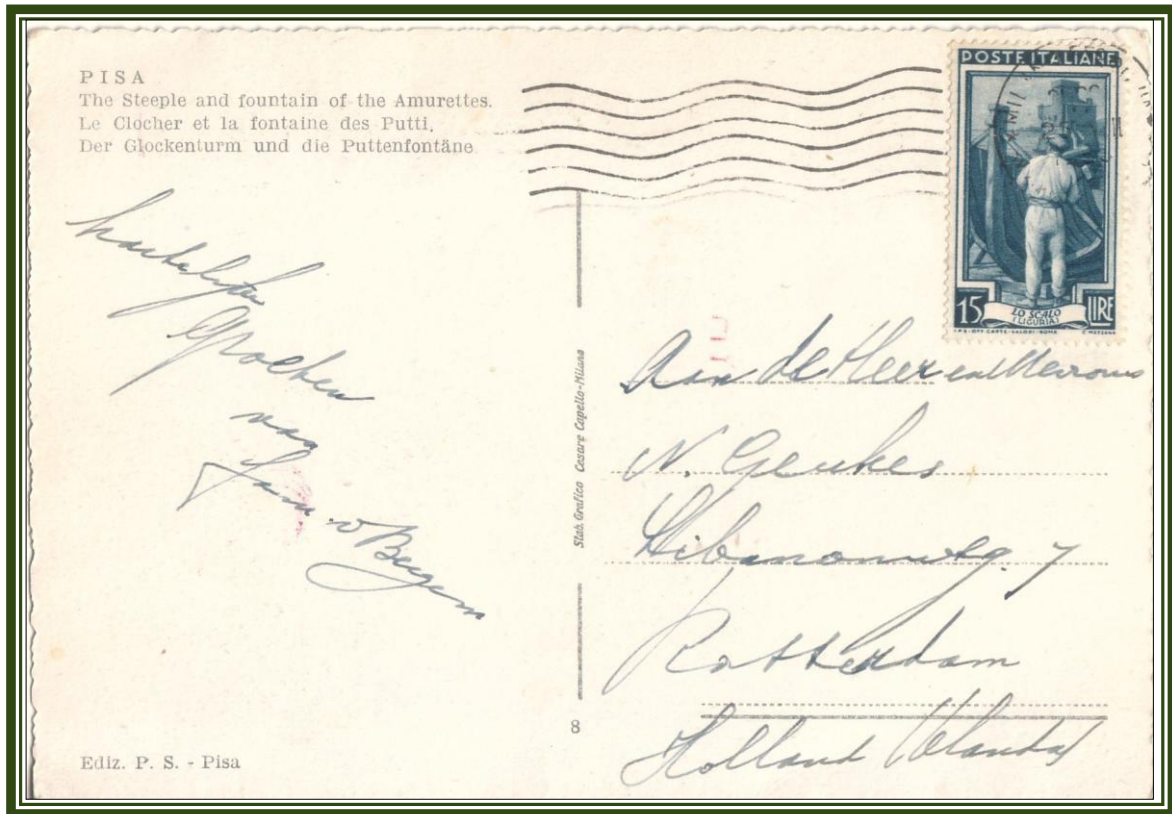 PISA
The Steeple and fountain of the Amurettes.
Le Clocher et la fontaine des Putti.
Der Glockenturm und die Puttenfontäne
hartelijke
Groeten
van
Fam. v Bergem
Ediz. P. S. - Pisa
Stab. Grafico Cesare Capello-Milano
8
POSTE ITALIANE
15 LO SCALO LIRE
(LIGURIA)
Aan de Heer en Mevrouw
N. Geukes
7
Rotterdam
Holland (Olanda)